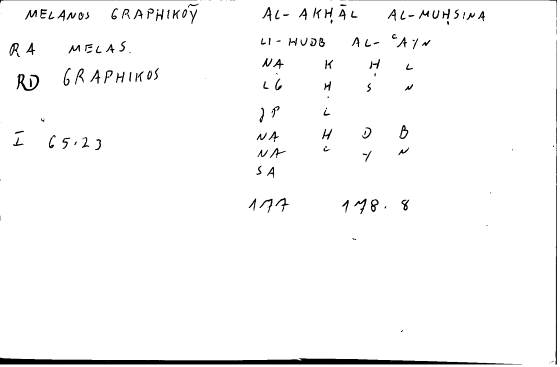 MELANOS GRAPHIKOỸ
RA MELAS.
RD GRAPHIKOS
I 65.23
AL-AKḤĀL AL-MUḤSINA
LI-HUDB AL-ʿAYN
NA K Ḥ L
LG Ḥ S N
JP L
NA H D B
NA ʿ Y N
SA
177 178.8